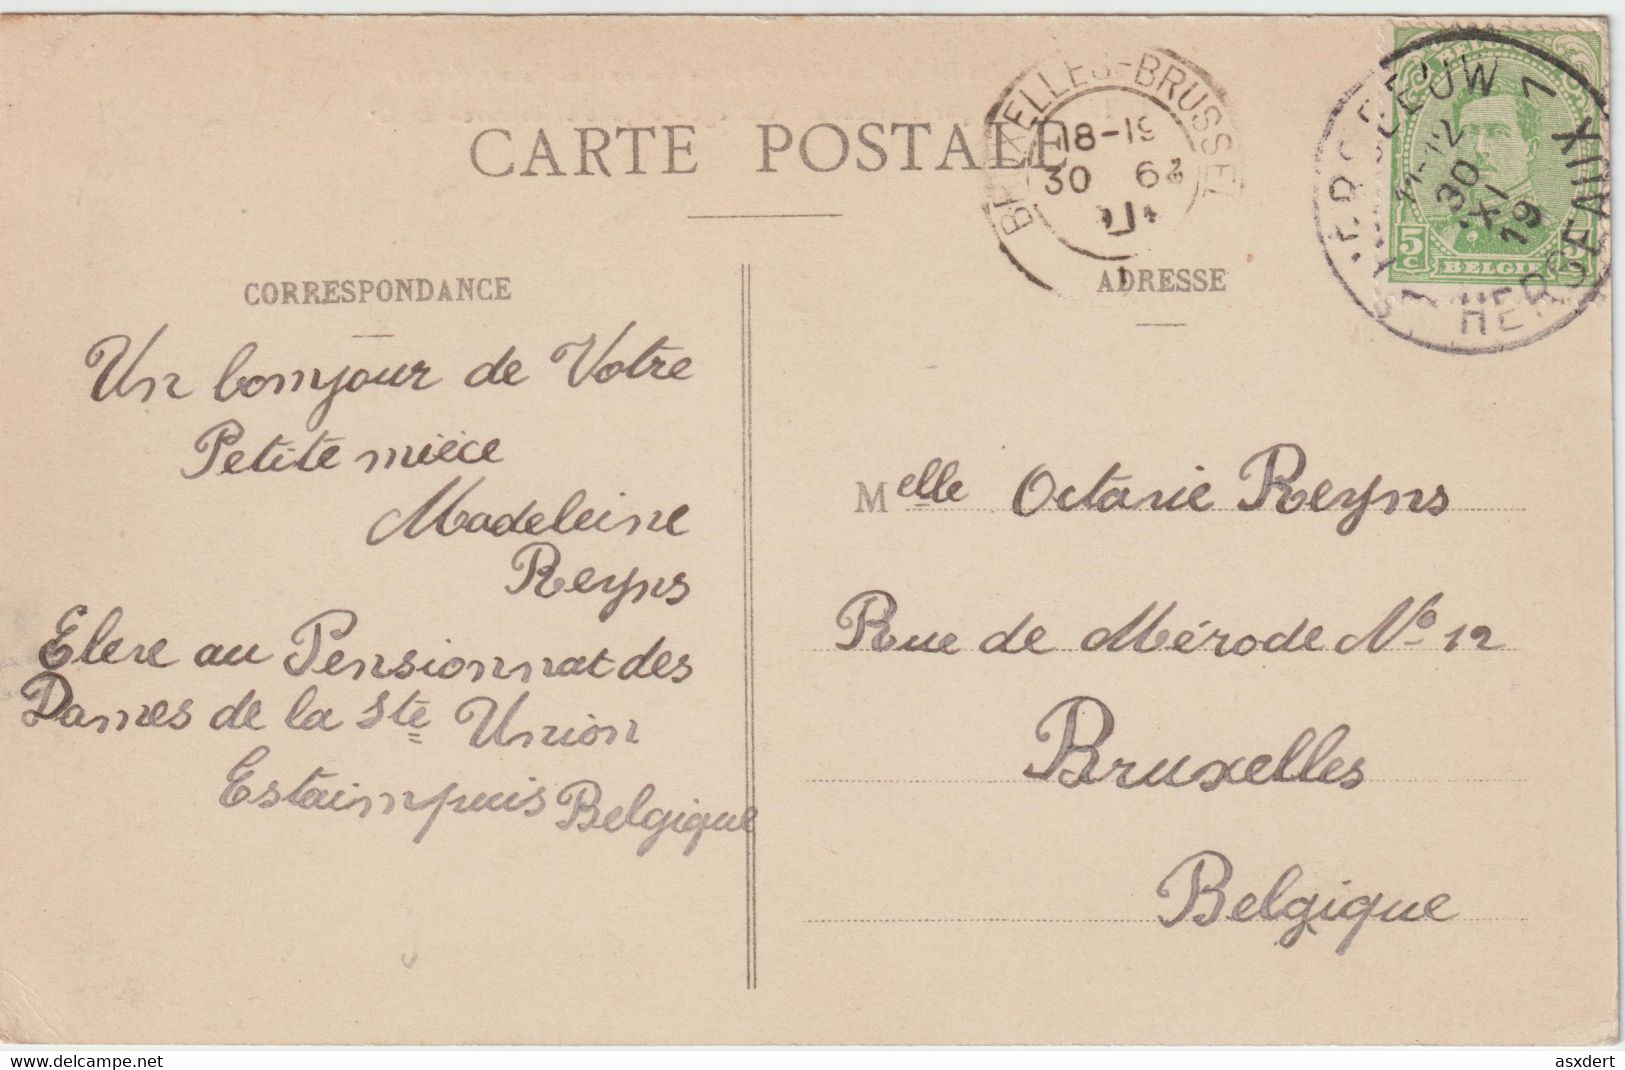 CARTE POSTALE
CORRESPONDANCE
Un bonjour de Votre
Petite nièce
Madeleine
Reyns
Elève au Pensionnat des
Dames de la Ste Union
Estaimpuis Belgique
ADRESSE
Melle Octavie Reyns
Rue de Mérode No 12
Bruxelles
Belgique
18-19
30
11-12
30
XI
19
HERSEAUX
5c
BELGIE
delcampe.net
asxdert